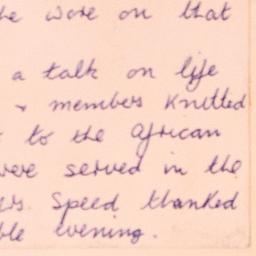 he wore on that
a talk on life
& members knitted
to the African
were served in the
Mrs. Speed thanked
evening.